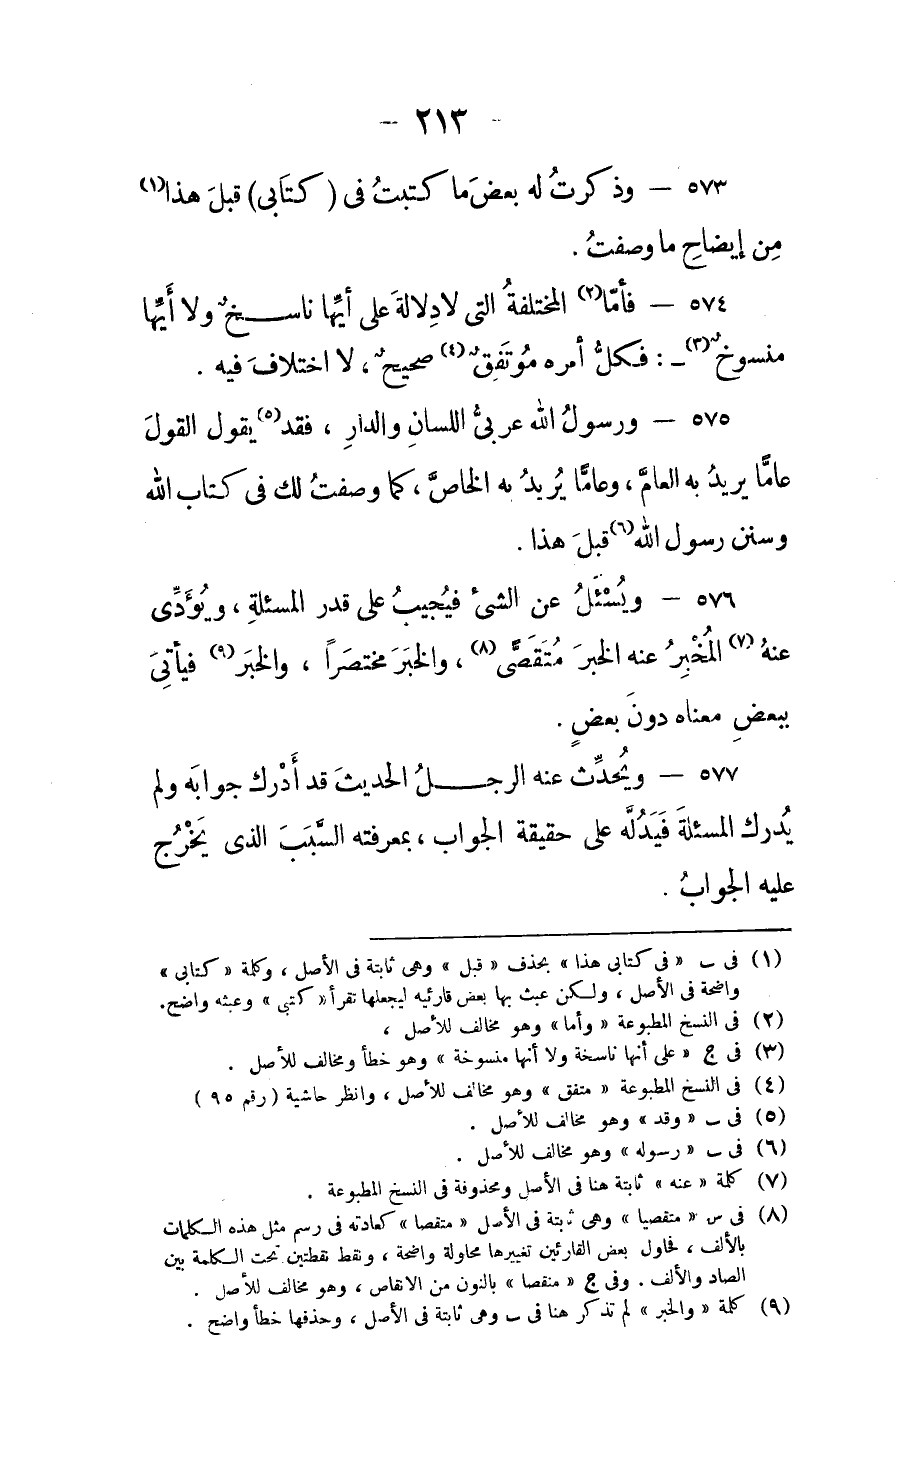 - ٢١٣ -
٥٧٣ — وذكرتُ له بعضَ ما كتبتُ فى (كتَابى) قبلَ هذا(١)
مِن إيضاحِ ما وصفتُ .
٥٧٤ — فأمّا(٢) المختلفةُ التى لا دِلالةَ على أيِّها ناسخٌ ولا أَيِّها
منسوخٌ(٣) ــ : فكلُّ أمره مُوتَفِقٌ(٤) صحيحٌ ، لا اختلافَ فيه .
٥٧٥ — ورسولُ الله عربىُّ اللسانِ والدارِ ، فقد(٥) يقول القولَ
عامًّا يريدُ به العامَّ ، وعامًّا يُريدُ به الخاصَّ ، كما وصفتُ لك فى كتاب الله
وسنن رسول الله(٦) قبلَ هذا .
٥٧٦ — ويُسْئَلُ عن الشىء فيُجيبُ على قدر المسئلةِ ، ويُؤَدِّى
عنهُ(٧) المُخْبِرُ عنه الخبرَ مُتَقَصًّى(٨) ، والخبَرَ مختصَراً ، والخبَرَ(٩) فيأتِىَ
ببعضِ معناه دونَ بعضٍ .
٥٧٧ — ويُحدِّث عنه الرجلُ الحديثَ قد أَدْرك جوابَه ولم
يُدرك المسئلةَ فَيَدُلَّه على حقيقة الجواب ، بمعرفته السَّبَبَ الذى يَخْرُج
عليه الجوابُ .
(١) فى ب « فى كتابى هذا » بحذف « قبل » وهى ثابتة فى الأصل ، وكلمة « كتابى »
واضحة فى الأصل ، ولكن عبث بها بعض قارئيه ليجعلها تقرأ « كتبى » وعبثه واضح.
(٢) فى النسخ المطبوعة « وأما » وهو مخالف للأصل ،
(٣) فى ج « على أنها ناسخة ولا أنها منسوخة » وهو خطأ ومخالف للأصل .
(٤) فى النسخ المطبوعة « متفق » وهو مخالف للأصل ، وانظر حاشية (رقم ٩٥)
(٥) فى ب « وقد » وهو مخالف للأصل .
(٦) فى ب « رسوله » وهو مخالف للأصل .
(٧) كلمة « عنه » ثابتة هنا فى الأصل ومحذوفة فى النسخ المطبوعة .
(٨) فى س « متقصيا » وهى ثابتة فى الأصل « متقصا » كعادته فى رسم مثل هذه الكلمات
بالألف ، فحاول بعض القارئين تغييرها محاولة واضحة ، ونقط نقطتين تحت الكلمة بين
الصاد والألف . وفى ج « منقصا » بالنون من الانقاص ، وهو مخالف للأصل .
(٩) كلمة « والخبر » لم تذكر هنا فى ب وهى ثابتة فى الأصل ، وحذفها خطأ واضح .